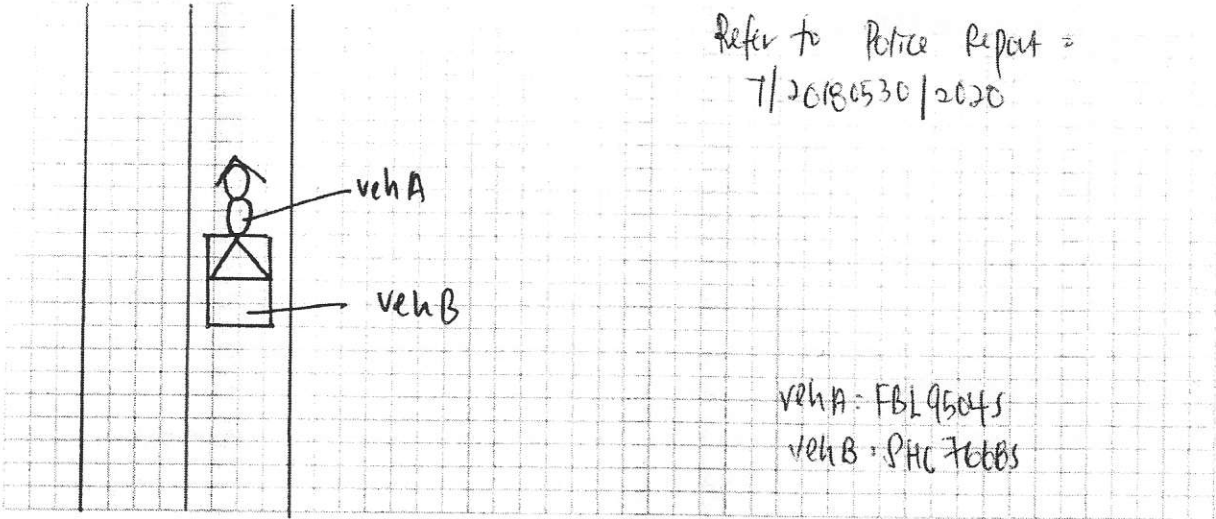 Refer to Police Report =
7/20180530/2020
veh A
veh B
veh A: FBL9504S
veh B: SHC7666S